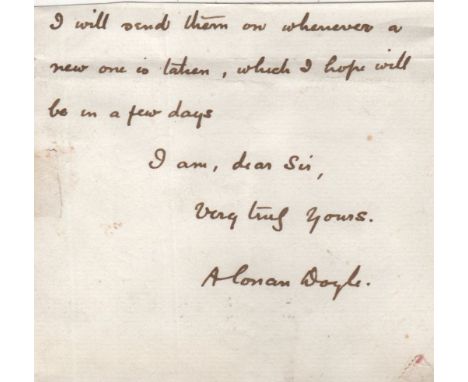 I will send them on whenever a
new one is taken, which I hope will
be in a few days
I am, dear Sir,
Very truly Yours.
A Conan Doyle.